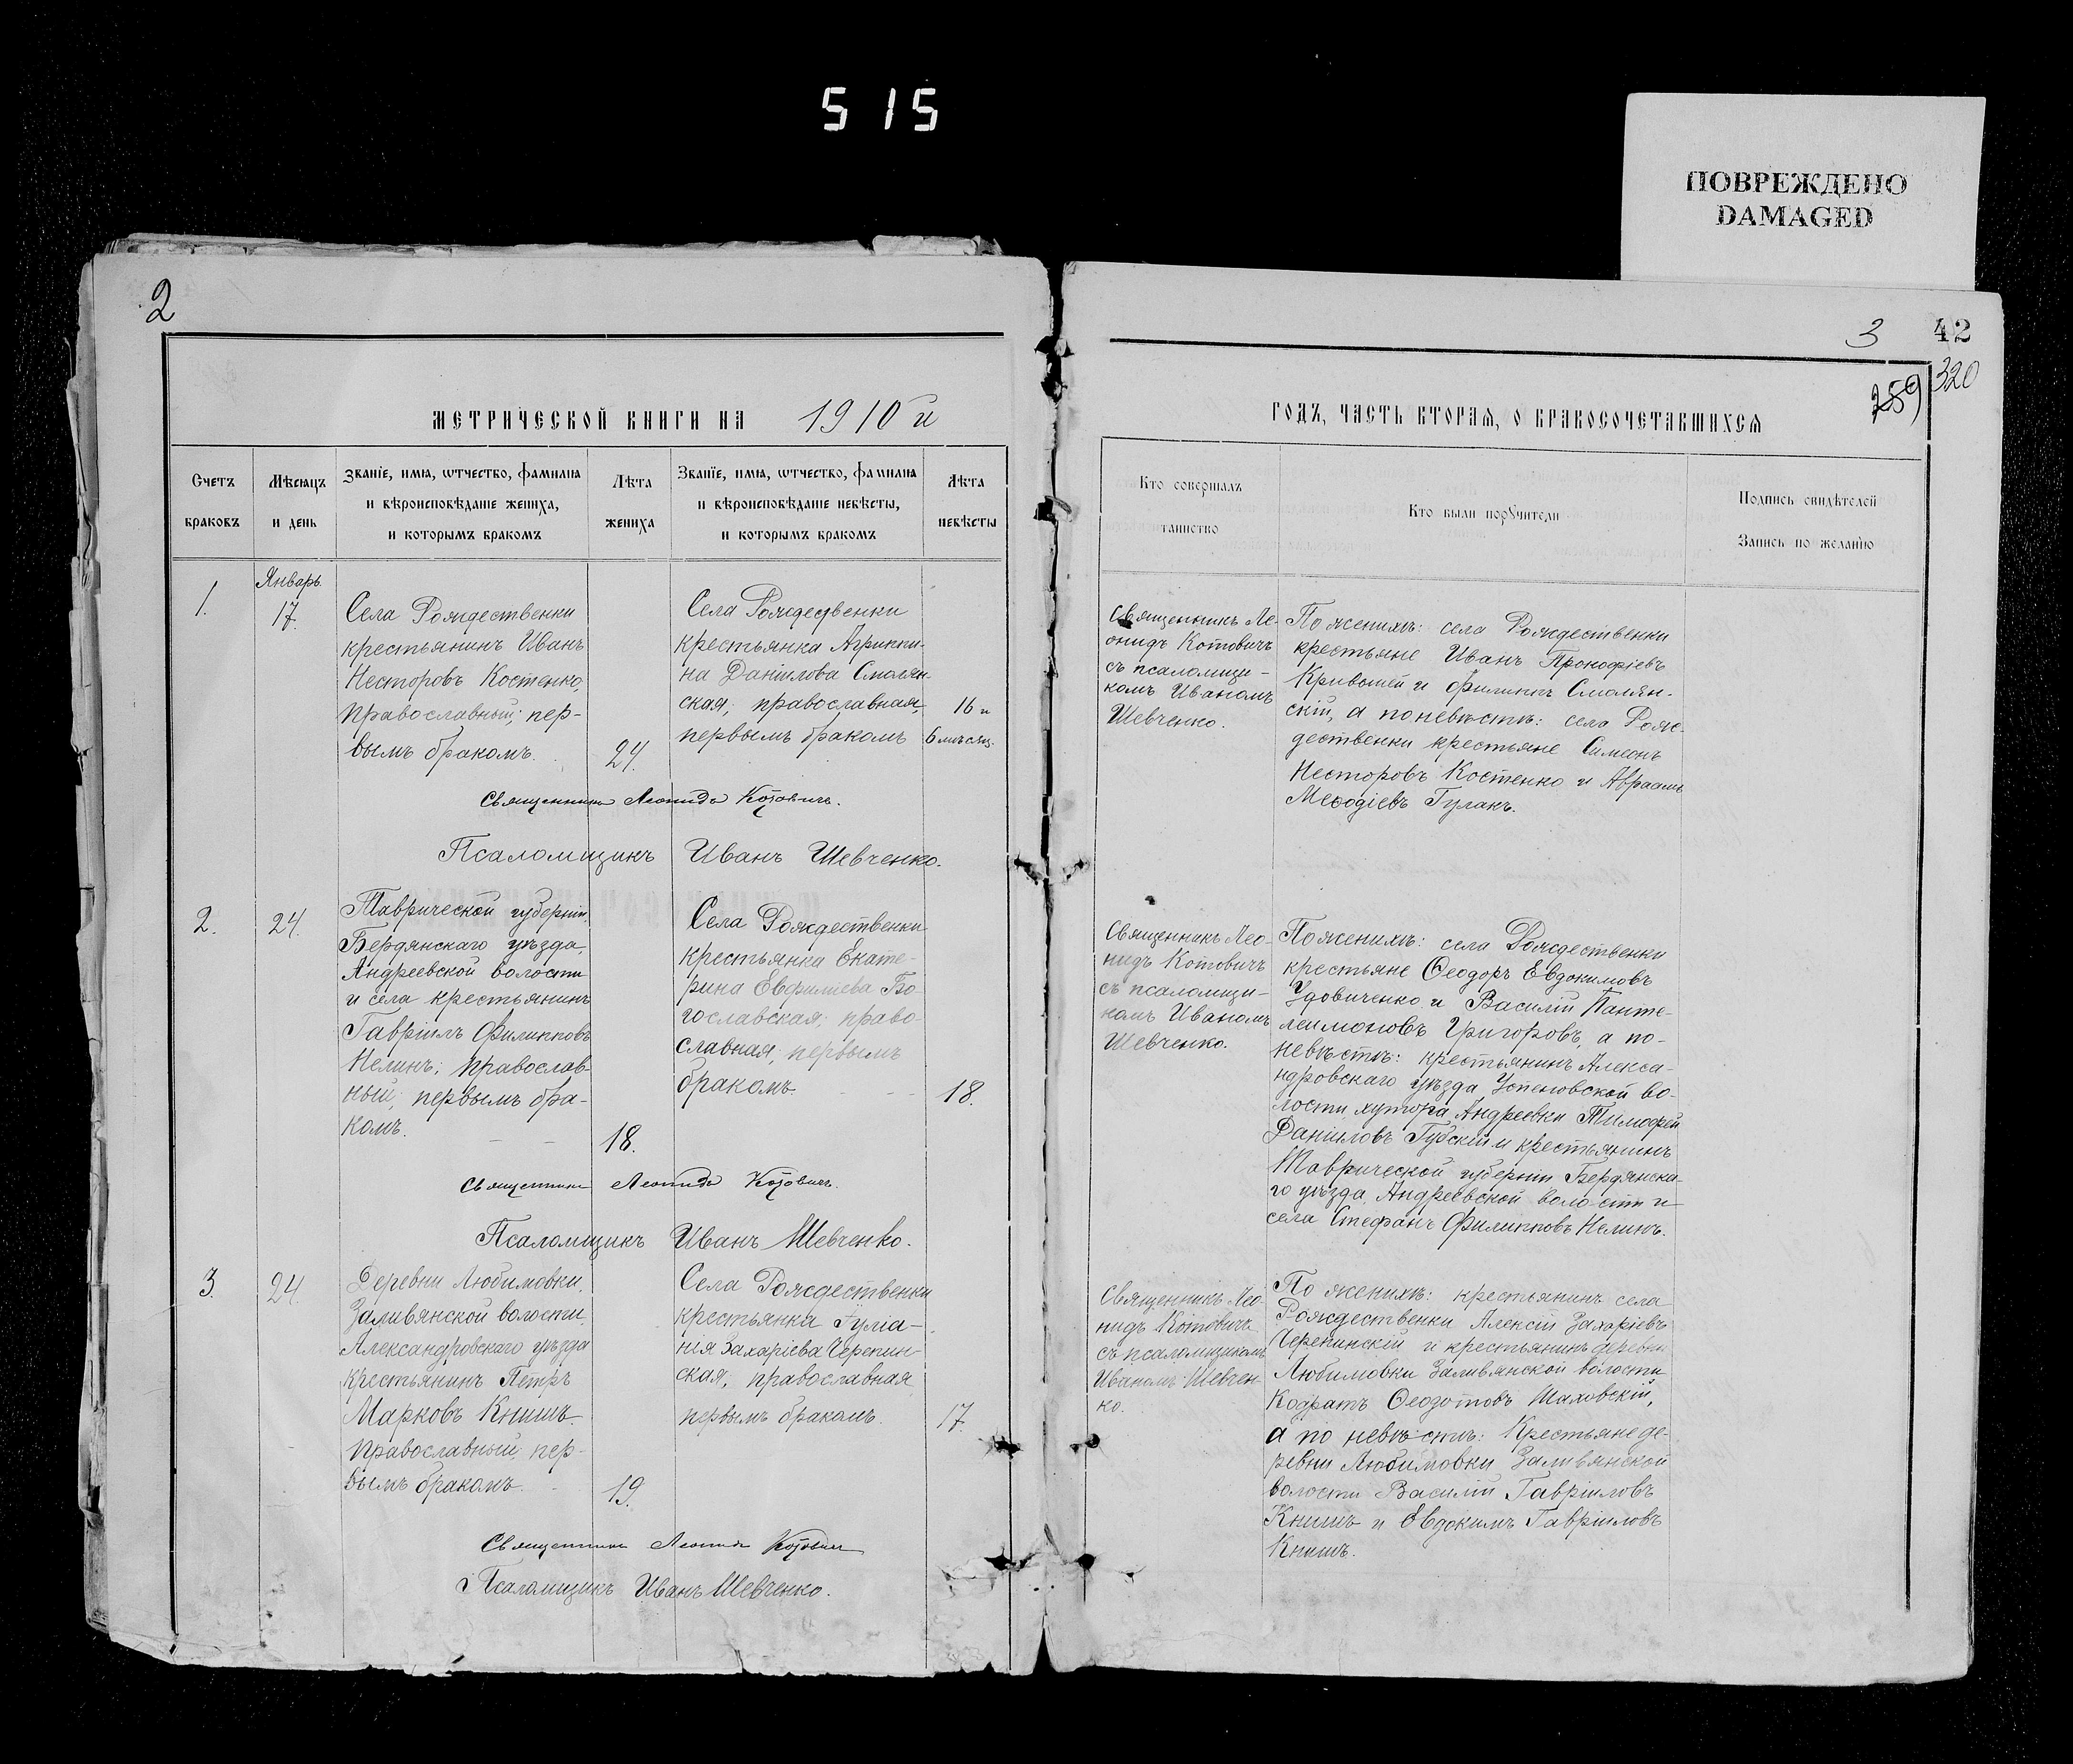 515
ПОВРЕЖДЕНО
DAMAGED
2
МЕТРИЧЕСКОЙ КНИГИ НА 1910 й
Счетъ браковъ
Мѣсяцъ и день
Званіе, имя, ѡтчество, фамилія и вѣроисповѣданіе жениха, и которымъ бракомъ
Лѣта жениха
Званіе, имя, ѡтчество, фамилія и вѣроисповѣданіе невѣсты, и которымъ бракомъ
Лѣта невѣсты
1.
Январь.
17.
Села Рождественки
крестьянинъ Иванъ
Несторовъ Костенко,
православный; пер-
вымъ бракомъ.
24.
Села Рождественки
крестьянка Агриппи-
на Даніилова Смолян-
ская; православная,
первымъ бракомъ
16 и
6 мѣсяц.
Священникъ Леонидъ Котовичъ.
Псаломщикъ Иванъ Шевченко.
2.
24.
Таврической губерніи,
Бердянскаго уѣзда,
Андреевской волости
и села крестьянинъ
Гавріилъ Филипповъ
Нелинъ; православ-
ный; первымъ бра-
комъ.
18.
Села Рождественки
крестьянка Екате-
рина Евфиміева Бо-
гославская; право-
славная; первымъ
бракомъ.
18.
Священникъ Леонидъ Котовичъ.
Псаломщикъ Иванъ Шевченко.
3.
24.
Деревни Любимовки,
Заливянской волости,
Александровскаго уѣзда
крестьянинъ Петръ
Марковъ Книшъ
православный; пер-
вымъ бракомъ.
19.
Села Рождественки
крестьянка
нія Захаріева Черепин-
ская; православная
первымъ бракомъ.
17.
Священникъ Леонидъ Котовичъ
Псаломщикъ Иванъ Шевченко.
3
42
320
259
ГОДЪ, ЧАСТЬ ВТОРАЯ, О БРАКОСОЧЕТАВШИХСЯ
Кто совершалъ таинство
Кто были поручители
Подпись свидѣтелей
Запись по желанію
Священникъ Ле-
онидъ Котовичъ
съ псаломщи-
комъ Иваномъ
Шевченко.
По женихѣ: села Рождественки
крестьяне Иванъ Прокофіевъ
Кривошей и Филиппъ Смолян-
скій, а по невѣстѣ: села Рож-
дественки крестьяне Симеонъ
Несторовъ Костенко и Авраамъ
Меѳодіевъ Гулакъ.
Священникъ Лео-
нидъ Котовичъ
съ псаломщи-
комъ Иваномъ
Шевченко.
По женихѣ: села Рождественки
крестьяне Ѳеодоръ Евдокимовъ
Удовиченко и Василій Панте-
леимоновъ Григоровъ, а по-
невѣстѣ: крестьянинъ Алекса-
ндровскаго уѣзда Успеновской во-
лости, хутора Андреевки Тимофей
Даніиловъ Губскій и крестьянинъ
Таврической губерніи Бердянска-
го уѣзда Андреевской волости и
села Стефанъ Филипповъ Нелинъ.
Священникъ Лео-
нидъ Котовичъ
съ псаломщикомъ
Иваномъ Шевчен-
ко.
По женихѣ: крестьянинъ села
Рождественки Алексій Захаріевъ
Черепинскій и крестьянинъ деревни
Любимовки Заливянской волости
Кодратъ Ѳеодотовъ Шаховскій,
а по невѣстѣ: крестьяне де-
ревни Любимовки Заливянской
волости Василій Гавріиловъ
Книшъ и Евдокимъ Гавріиловъ
Книшъ.